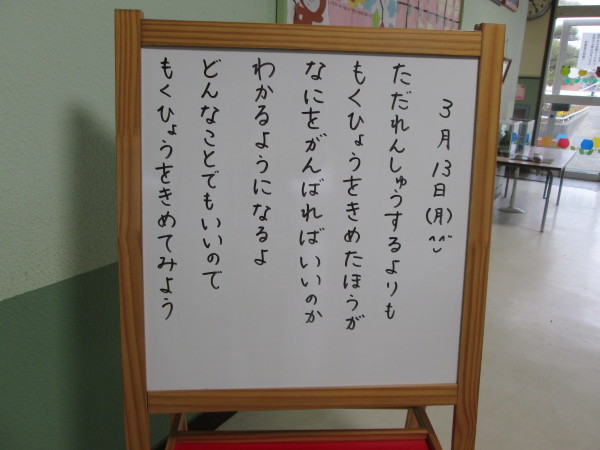 3月13日(月)^^
ただれんしゅうするよりも
もくひょうをきめたほうが
なにをがんばればいいのか
わかるようになるよ
どんなことでもいいので
もくひょうをきめてみよう